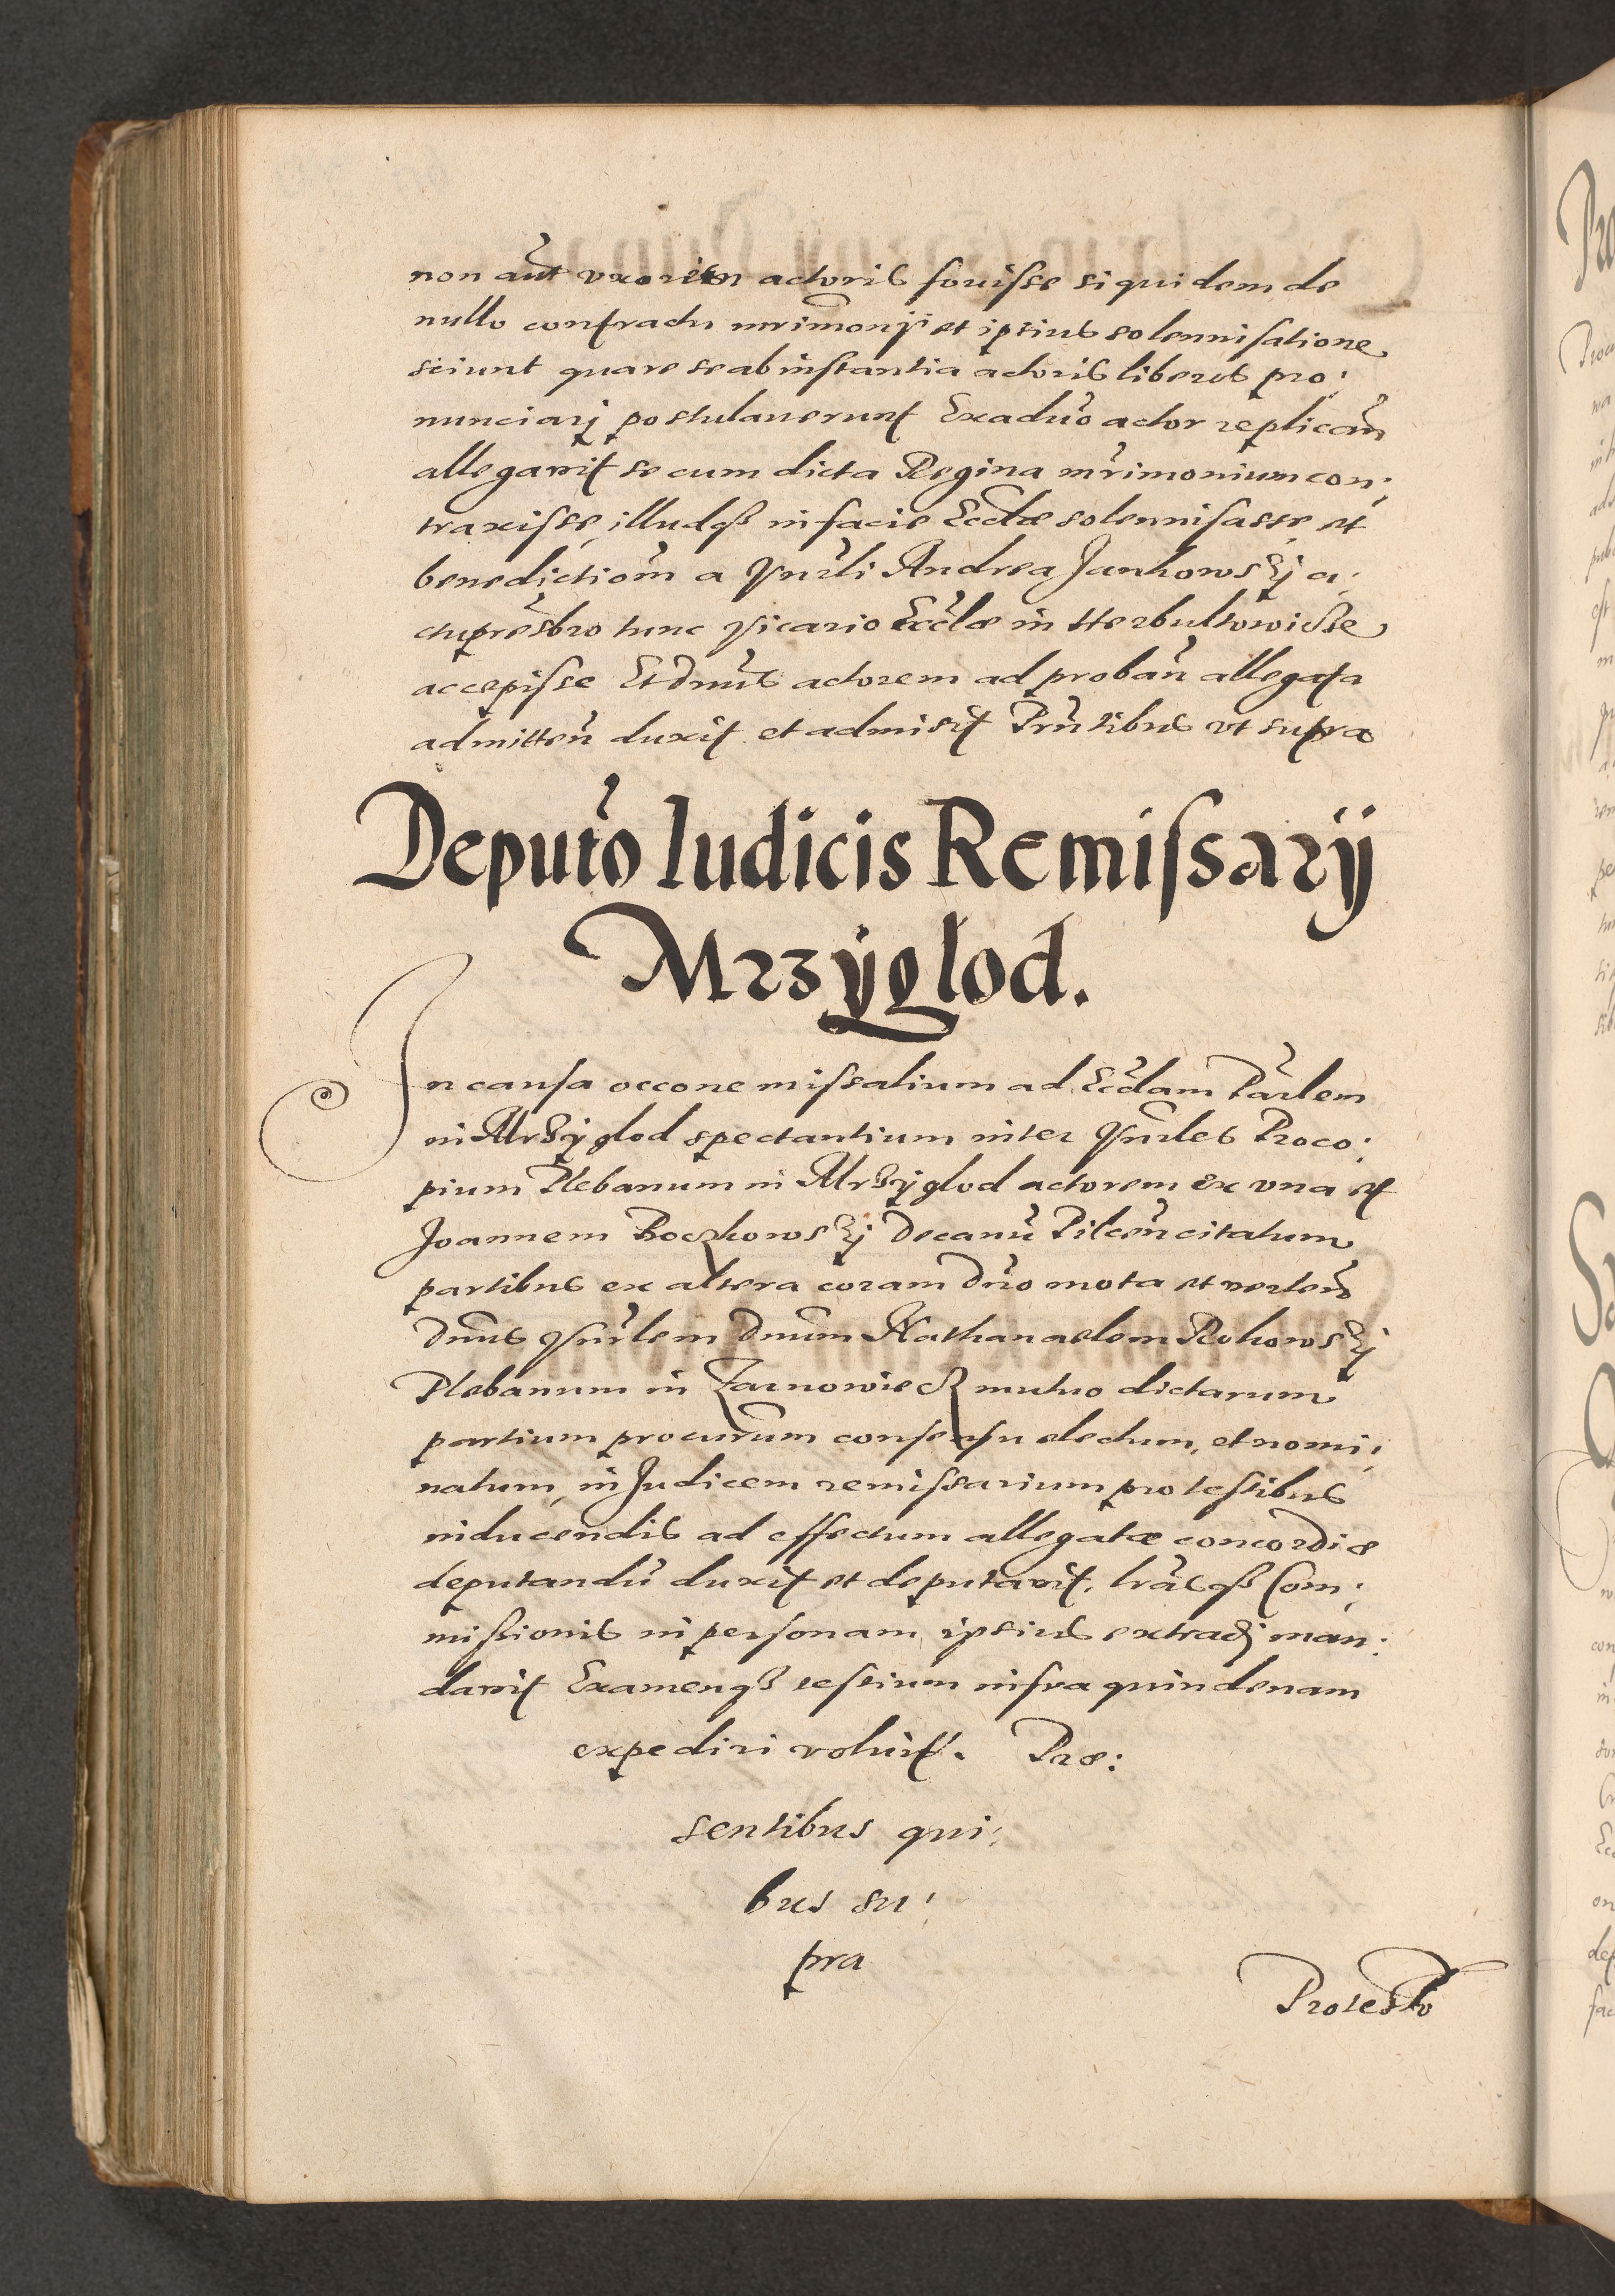 non aut̃ vxorem actoris fouisse siquidem de
nullo contractu mrimonij et ipsius solennisatione
sciunt quare se ab instantia actoris liberos pro:
nunciarj postulauerunt Exaduo actor replican̄
allegauit se cum dicta Regina mrimonium con:
traxisse, illudqꝫ in facie Eccłæ solennisasse, et
benedictiom̄ a Andrea Jankowskj a:
ctu prēsbro tunc Vicario Eccłæ in Herbultowicze
accepisse Et Dnus actorem ad proban̄ allegata
admitten̄ duxit et admisit Prn̄tibus vt supra
Deputo Iudicis Remissarij
Mrzyglod.
In causa occone missalium ad Eccłam Parlem
in Mrzyglod spectantium inter Proco:
pium Plebanum in Mrzyglod actorem ex vna et
Joannem Boczkowskj Decanū Pilcen̄ citatum
partibus ex altera coram Dn̄o mota et verten̄
Dnus Dnum Nathanaelem Rokowskj
Plebanum in Zarnowiecz mutuo dictarum
partium procurum consensu electum, et nomi:
natum, in Judicem remissarium pro testibus
inducendis ad effectum allegatæ concordiæ
deputandū duxit et deputauit, lrasqꝫ Com:
missionis in personam ipsius extradj man:
dauit Examenqꝫ testium infra quindenam
expediri voluit. Præ:
sentibus qui:
bus su:
pra
Protesto